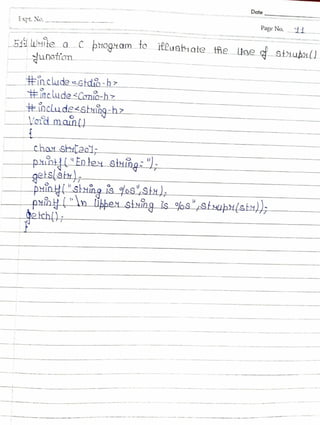 Date
Expt. No.
Page No. 11
5.1) Write a C program to illustrate the Use of strupr()
function
#include<stdio.h>
#include<Conio.h>
#include<string.h>
Void main()
{
char str[20];
printf("Enter string: ");
gets(str);
printf("string is %s",str);
printf("\n Upper string is %s",strupr(str));
getch();
}